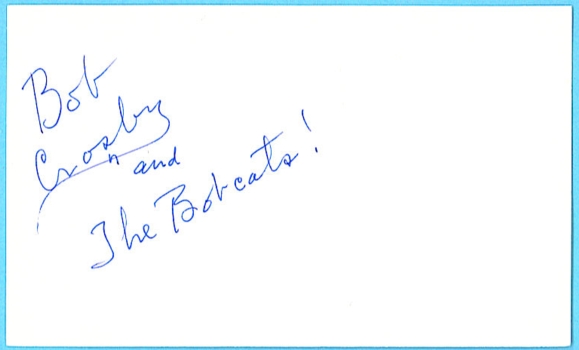 Bob
Crosby
and
The Bobcats!